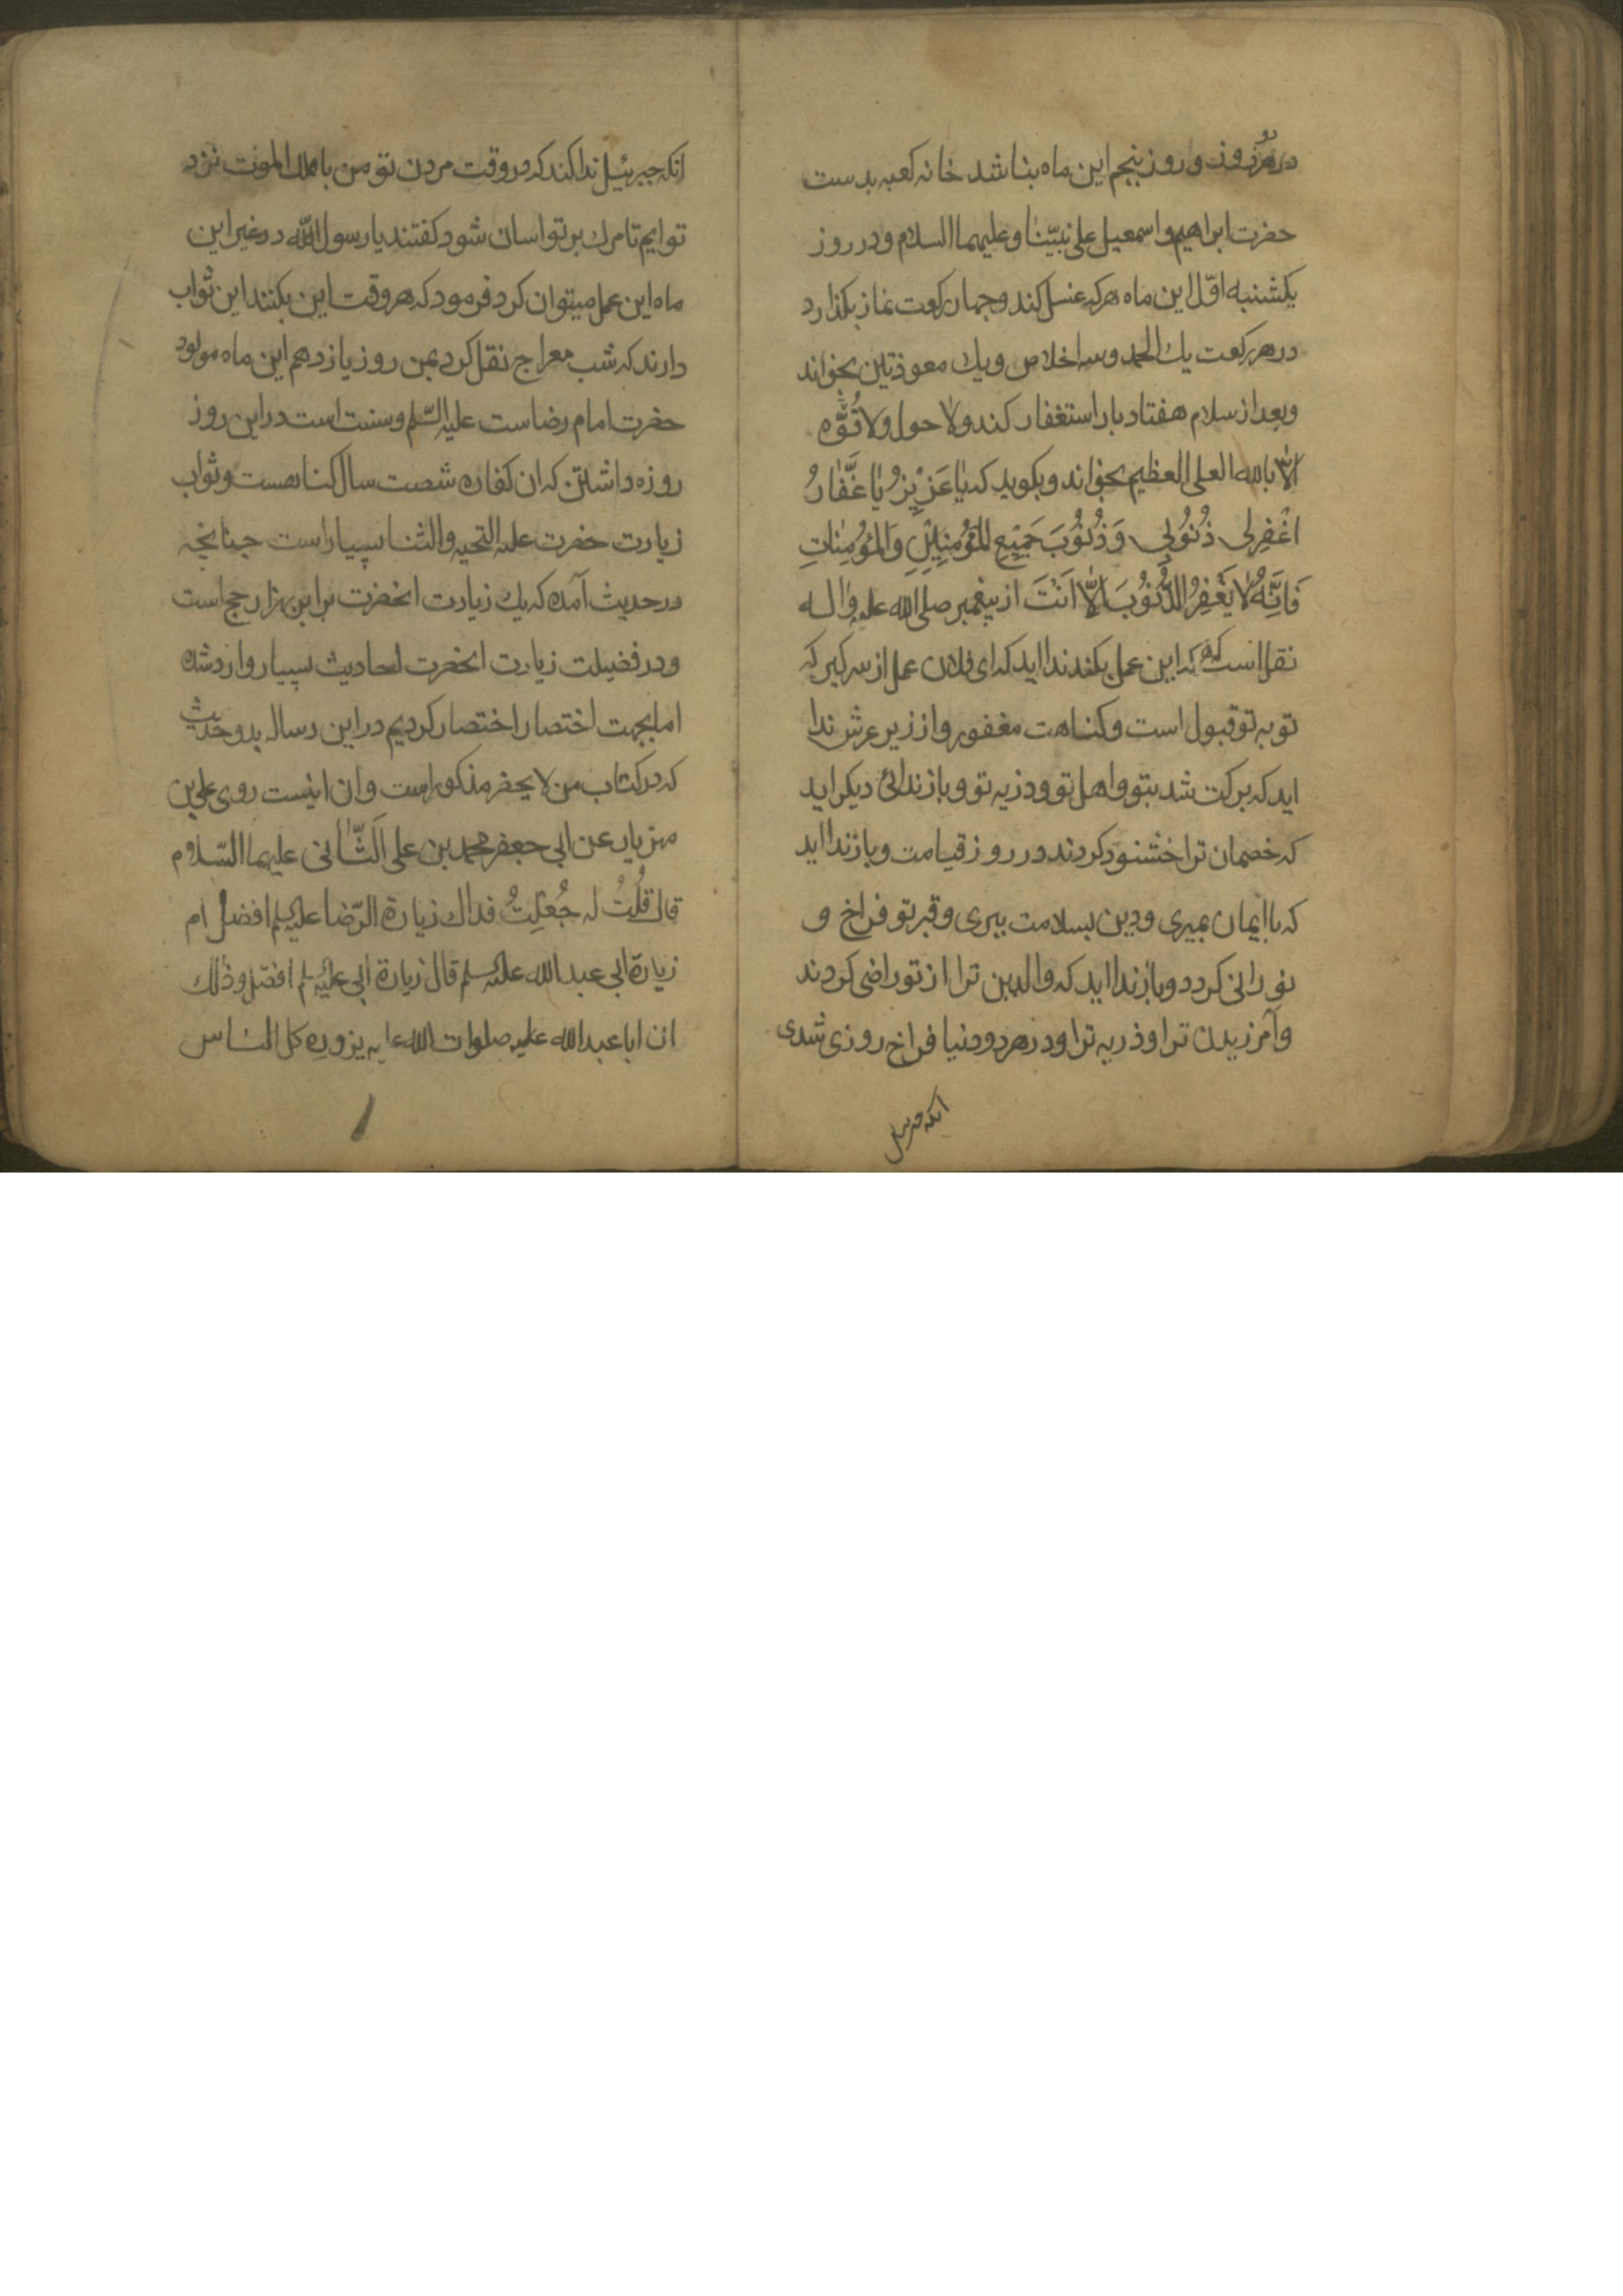 در هر روز و روز پنجم این ماه بنا شد خانه کعبه بدست
حضرت ابراهیم و اسمعیل علی نبیّنا و علیهما السلام و در روز
یکشنبه اوّل این ماه هرکه غسل کند و چهار رکعت نماز بکذارد
در هر رکعت یك الحمد و سه اخلاص و یك معوذتین بخواند
و بعد از سلام هفتاد بار استغفار کند و لا حول ولا قُوَّه
اِلّا بالله العلی العظیم بخواند و بکوید که یٰا عَزیْزُ یٰا غَفّٰارُ
اغْفِرلی ذُنُوبی وَ ذُنُوبَ جَمیْعِ المُؤْمِنینِ وَ المُؤْمِنٰاتِ
فَاِنَّهُ لٰا یَغْفِرُ الذُّنُوبَ اِلّٰا اَنْتَ از پیغمبر صلی الله علیه واله
نقل است که هرکه این عمل بکند ندا اید که ای فلان عمل از سر کیر که
توبه تو قبول است و کناهت مغفور و از زیر عرش ندا
اید که برکت شد بتو و اهل تو و ذزیه تو و باز ندائی دیکر اید
که خصمان ترا خشنود کردند در روز قیامت و باز ندا اید
که با ایمان بمیری و دین بسلامت ببری و قبر تو فراخ و
نورانی کردد و باز ندا اید که والدین ترا از تو راضی کردند
و آمرزیدن ترا و ذریه ترا و در هر دو دنیا فراخ روزی شدی
انکه جبرئیل
انکه جبرئیل ندا کند که در وقت مردن تو من با ملك الموت نزد
تو ایم تا مرك بر تو اسان شود کفتند یا رسول اللّه در غیر این
ماه این عمل میتوان کرد فرمود که هر وقت این بکنند این ثواب
دارند که شب معراج نقل کرد بمن روز یازدهم این ماه مولود
حضرت امام رضاست علیه السّلم و سنت است در این روز
روزه داشتن که ان کفاره شصت سال کناهست و ثواب
زیارت حضرت علیه التحیه والثنا بسیار است چنانچه
در حدیث آمده که یك زیارت انحضرت برابر هزار حج است
و در فضیلت زیارت انحضرت احادیث بسیار وارد شده
اما بجهت اختصار اختصار کردیم در این رساله بدو حدیث
که در کتاب من لا یحضر مذکور است و ان اینست روی علی بن
مهزیار عن ابی جعفر محمد بن علی الثّٰانی علیهما السّلام
قال قلُتُ له جُعلِتُ فداك زیارة الرّضا علیه السلم افضل ام
زیارة ابی عبد الله علیه السلم قال زیارة ابی علیه السلم افضل و ذلك
ان ابا عبد الله علیه صلوات الله علیه یزوره کل الناس